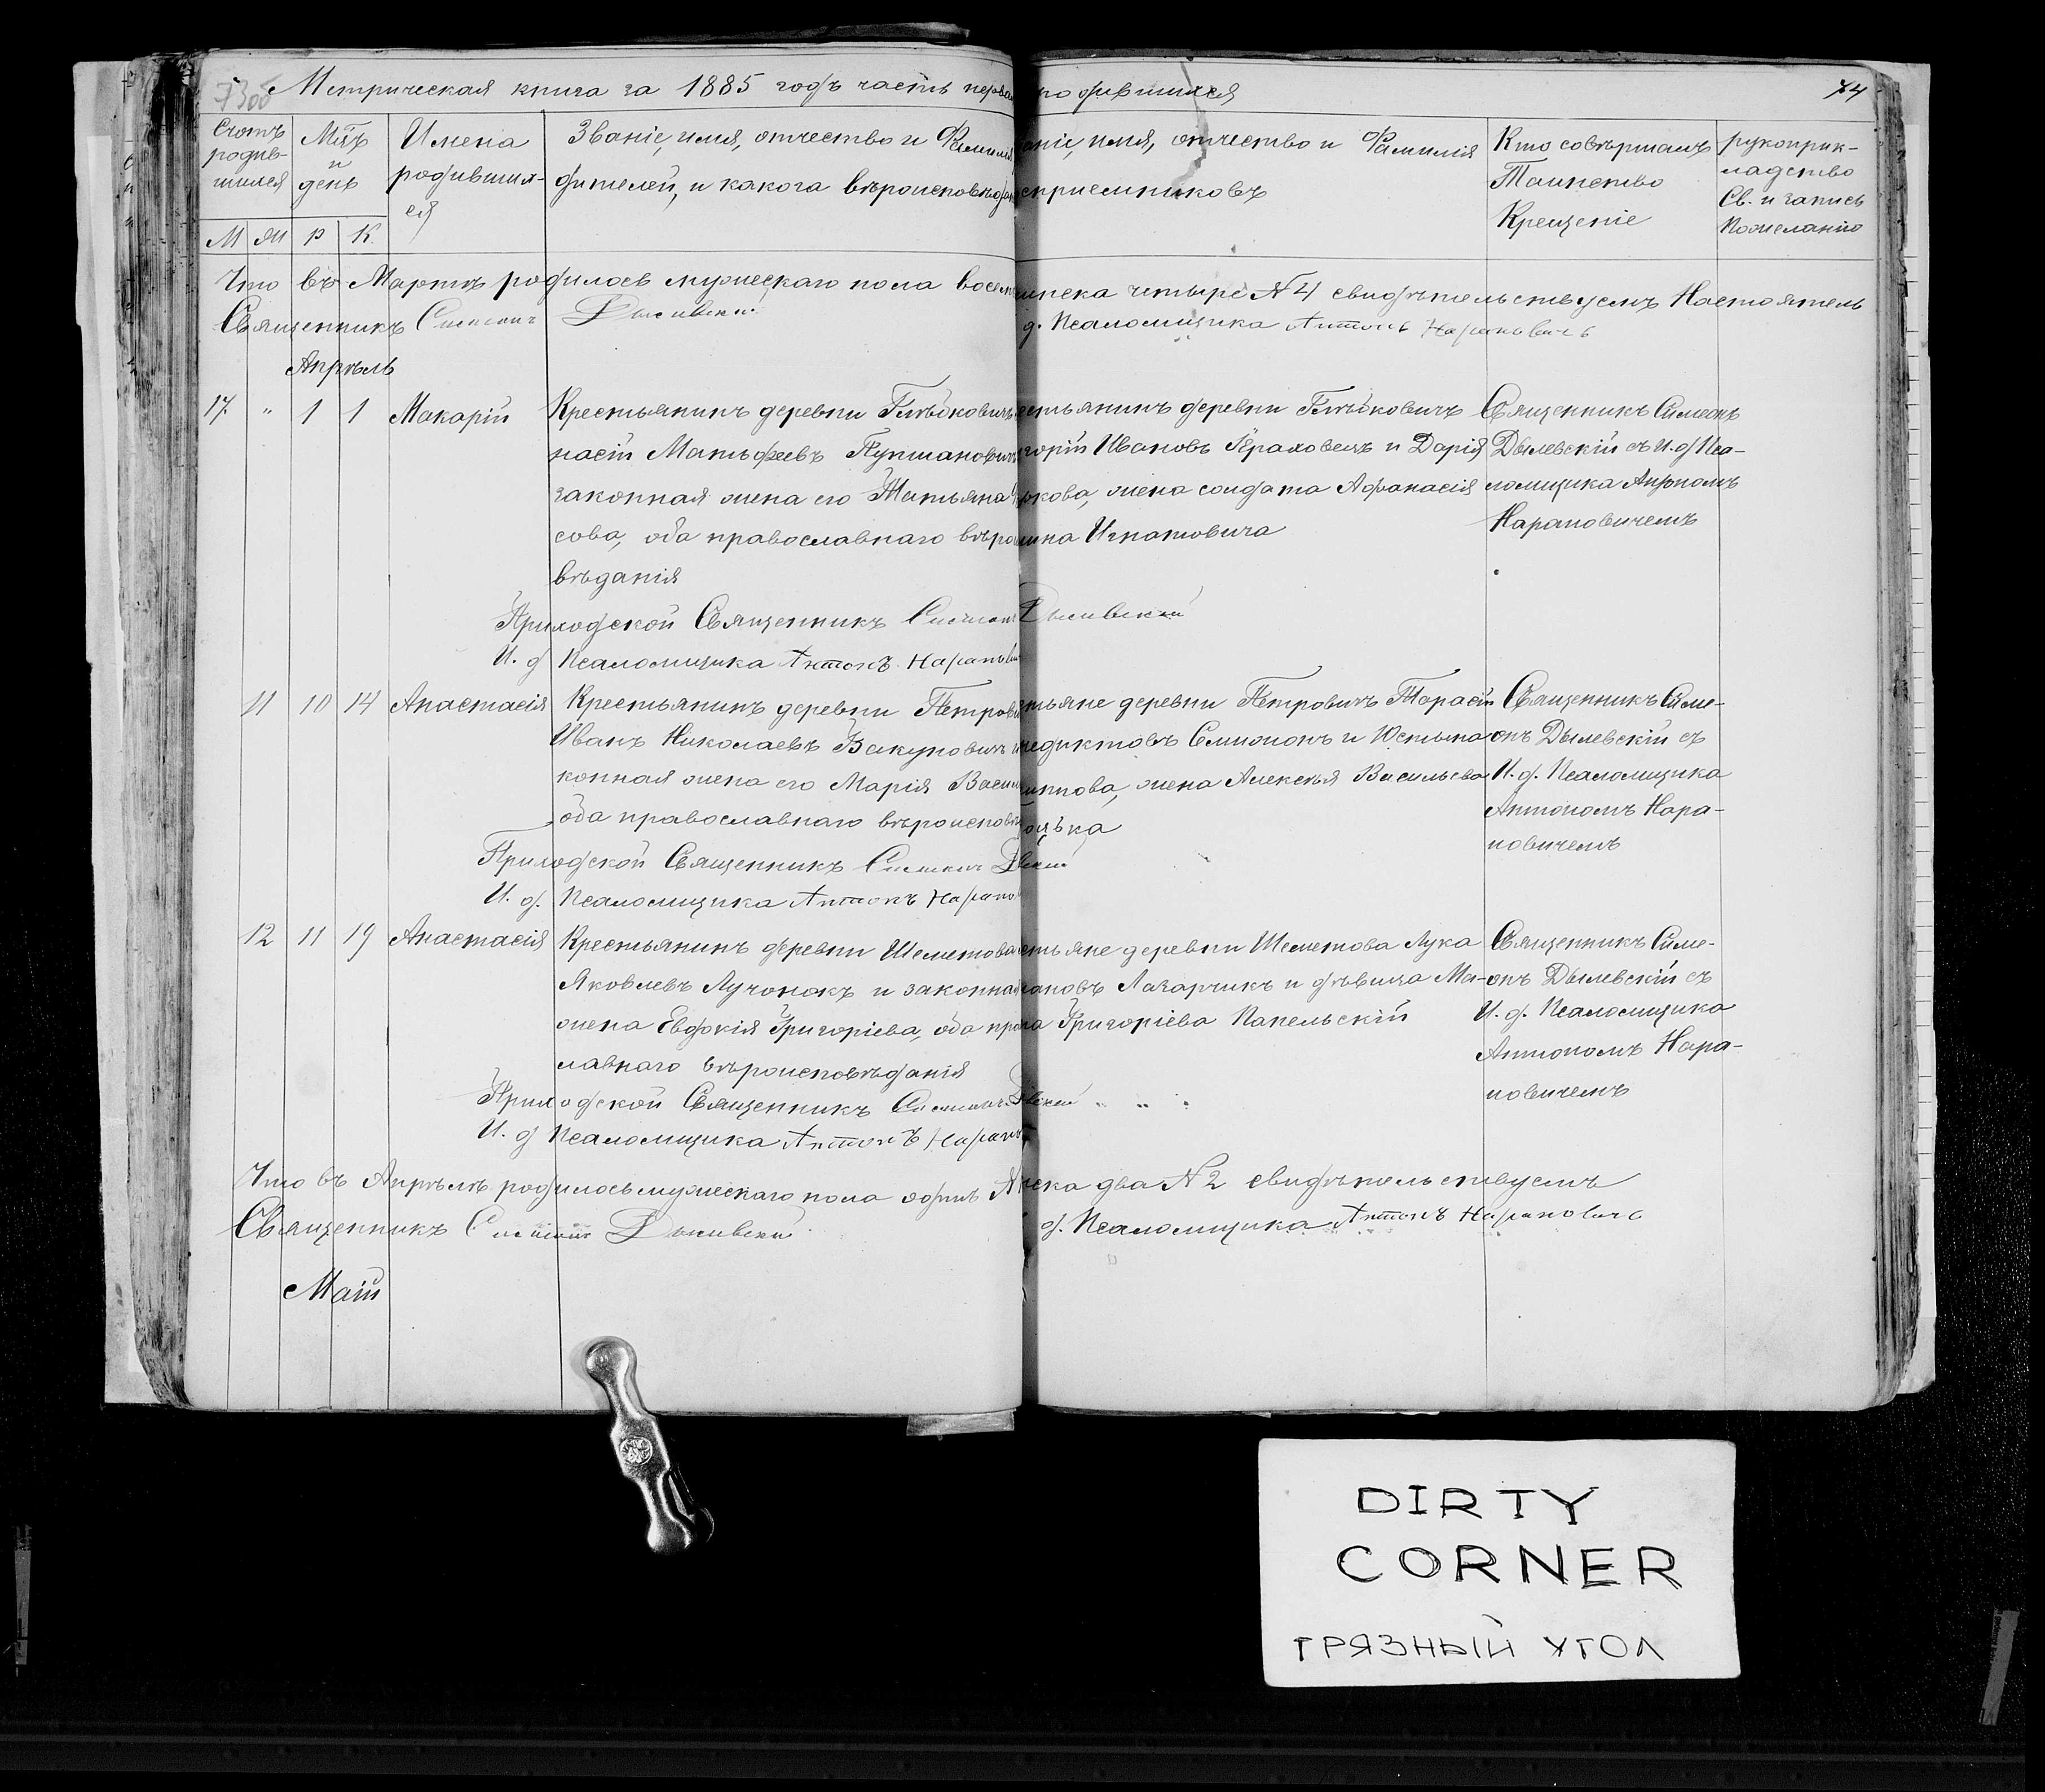 73об Метрическая книга за 1885 годъ часть первая родившихся 74
Счотъ родив-шихся
М Ж
Мцъ и день
Р К
Имена родившихся
Званіе, имя, отчество и Фамилія
дителей, и какога вѣроисповѣдан
аніе, имя, отчество и Фамилія
спріемниковъ
Кто совѣршалъ
Таинство
Крещеніе
рукоприк-
ладство
Св. и запись
По желанію
Что въ Мартѣ родилось мужескаго пола восем
женска четыре №4 свидѣтельствуемъ Настоятель
Священникъ Симеонъ Дылевскій
д. Псаломщика Антонъ Нарановичъ
Апрѣль
17 " 1 1 Макарій
Крестьянинъ деревни
насій Матѳеевъ
законная жена его Татьяна
сова, оба православнаго вѣро
вѣданія
естьянинъ деревни
горій Ивановъ и Дарія
кова, жена солдата Афанасія
мина Игнатовича
Священникъ Симеонъ
Дылевскій съ И. д. Пса-
ломщика Антономъ
Нарановичемъ
Приходской Священникъ Симеонъ Дылевскій
И. д. Псаломщика Антонъ Наранович
11 10 14 Анастасія
Крестьянинъ деревни Петрови
Иванъ Николаевъ Вакуновичъ и
конная жена его Марія Васил
оба православнаго вѣроисповѣ
тьяне деревни Петровичъ Тарасій
недиктовъ Семионъ и Юстына
жена Алексѣя Васильева
Священникъ Симе-
онъ Дылевскій съ
И. д. Псаломщика
Антономъ Нара-
новичемъ
Приходской Священникъ Симеонъ Д вскій
И. д. Псаломщика Антонъ Нарано
12 11 19 Анастасія
Крестьянинъ деревни Шеметова
Яковлевъ Лучонокъ и законная
жена Евдокія Григоріева, оба прав
славнаго вѣроисповѣданія
стьяне деревни Шеметова Лука
ановъ Лазарчикъ и дѣвица Ма-
на Григоріева Капельскій
Священникъ Симе-
онъ Дылевскій съ
И. д. Псаломщика
Антономъ Нара-
новичемъ
Приходской Священникъ Симеонъ Д вскій
И. д. Псаломщика Антонъ Нарано
Что въ Апрѣлѣ родилось мужескаго пола одинъ
женска два №2 свидѣтельствуемъ
Священникъ Симеонъ Дылевскій
д. Псаломщика Антонъ Нарановичъ
Май
DIRTY
CORNER
ГРЯЗНЫЙ УГОЛ